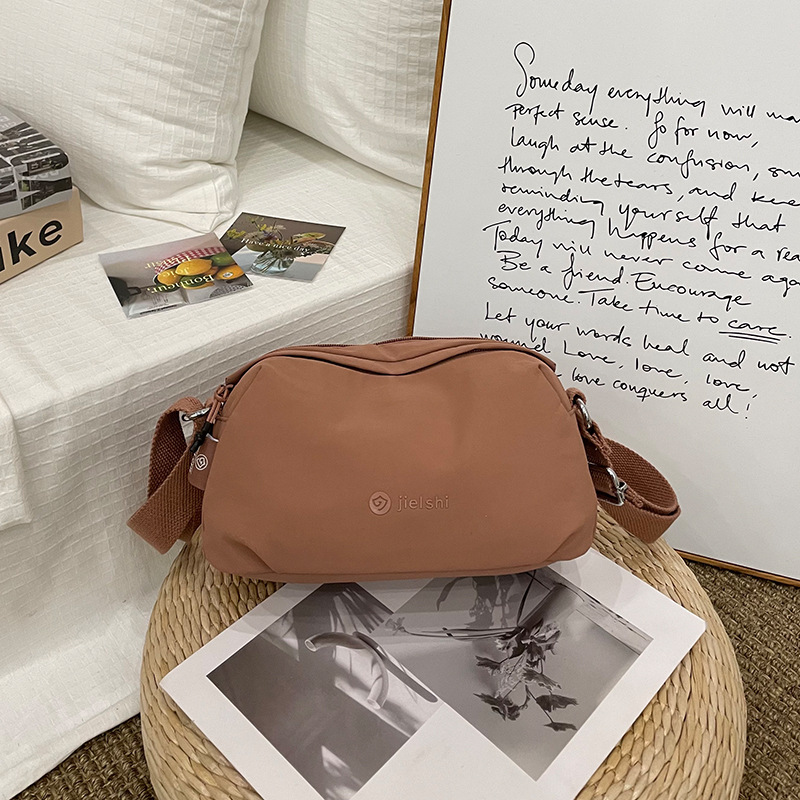 Someday everything will
perfect sense. So for now,
laugh at the confusion,
through the tears, and
reminding yourself that
everything happens for a
Today will never come
Be a friend. Encourage
someone. Take time to care.
Let your words heal and not
wound Love, love, love,
love conquers all!
Have a nice day
plaisir
Bonheur.
ke
jielshi